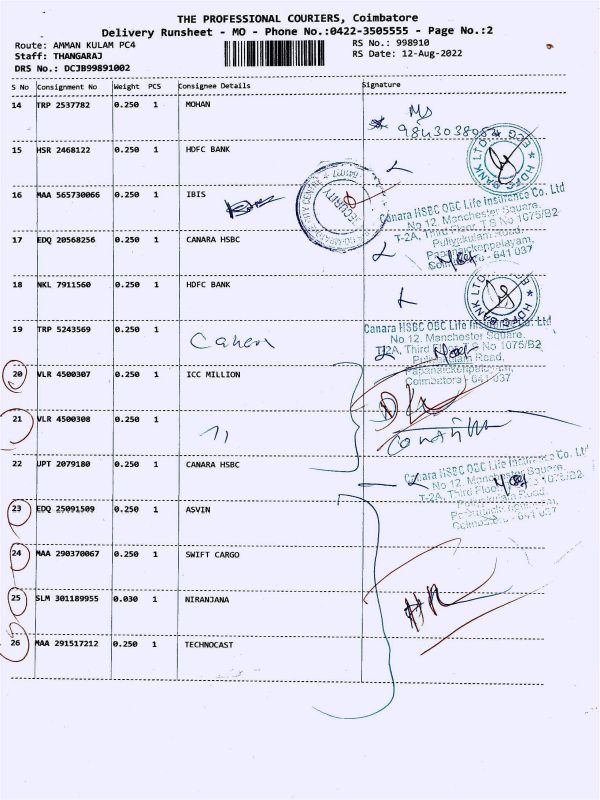 THE PROFESSIONAL COURIERS, Coimbatore
Delivery Runsheet - MO - Phone No.:0422-3505555 - Page No.:2
Route: AMMAN KULAM PC4
RS No.: 998910
Staff: THANGARAJ
RS Date: 12-Aug-2022
DRS No.: DCJB99891002
S No Consignment No Weight PCS Consignee Details Signature
14 TRP 2537782 0.250 1 MOHAN
15 HSR 2468122 0.250 1 HDFC BANK
HDFC BANK LTD
16 MAA 565730066 0.250 1 IBIS
SECURITY
Canara HSBC OBC Life Insurance Co. Ltd
No 12, Manchester Square,
T-2A, Third Floor, T S No 1075/B2
Puliyakulam Road,
Papanaickenpalayam,
Coimbatore - 641 037
17 EDQ 20568256 0.250 1 CANARA HSBC
18 NKL 7911560 0.250 1 HDFC BANK
HDFC BANK LTD
19 TRP 5243569 0.250 1
Canara HSBC OBC Life Insurance Co. Ltd
No 12, Manchester Square,
T-2A, Third Floor, T S No 1075/B2
Puliyakulam Road,
Papanaickenpalayam,
Coimbatore - 641 037
20 VLR 4500307 0.250 1 ICC MILLION
21 VLR 4500308 0.250 1
22 UPT 2079180 0.250 1 CANARA HSBC
Canara HSBC OBC Life Insurance Co. Ltd
No 12, Manchester Square,
T-2A, Third Floor, T S No 1075/B2
Puliyakulam Road,
Papanaickenpalayam,
Coimbatore - 641 037
23 EDQ 25091509 0.250 1 ASVIN
24 MAA 290370067 0.250 1 SWIFT CARGO
25 SLM 301189955 0.030 1 NIRANJANA
26 MAA 291517212 0.250 1 TECHNOCAST